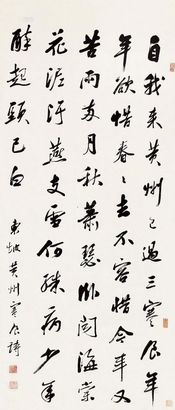 自我来黄州已過三寒食年
年欲惜春〻去不容惜今年又
苦雨兩月秋蕭瑟卧聞海棠
花泥汙燕支雪何殊病少年
醉起頭已白
東坡黄州寒食詩